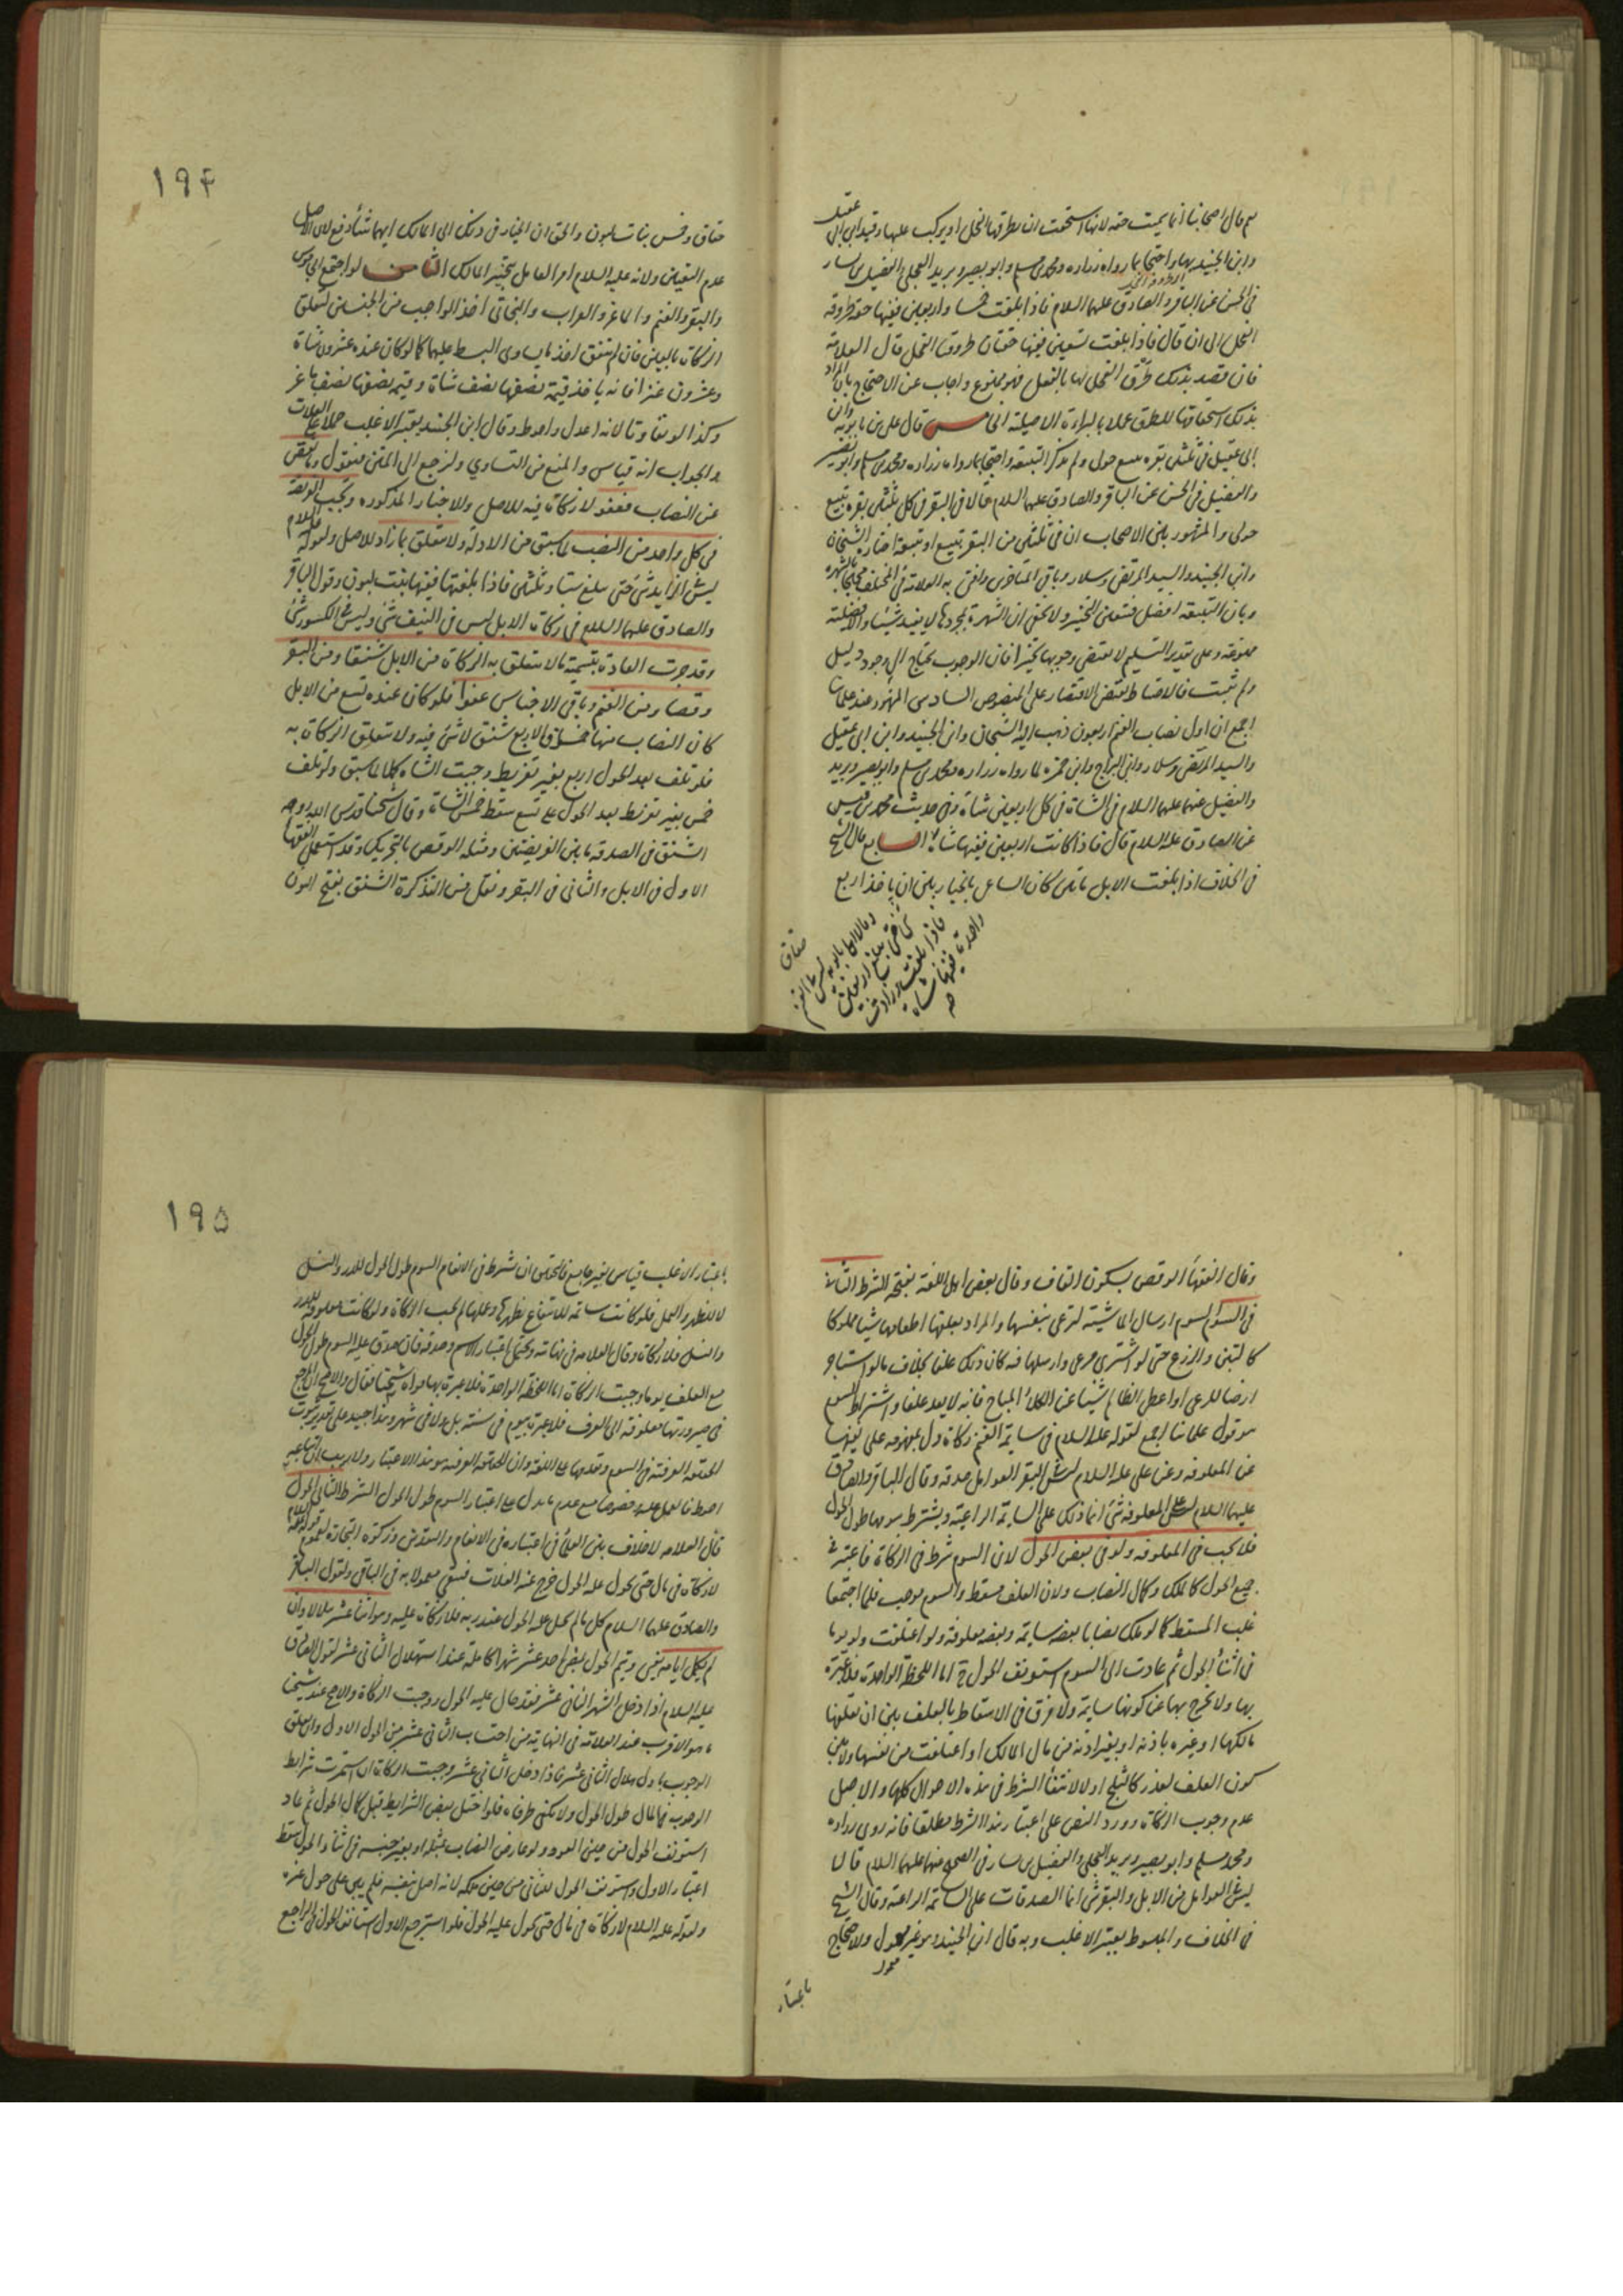 ثم قال اصحابنا انما سميت حقه لانها استحقت ان يطرقها الفحل او يركب عليها وقيد ابن ابي عقيل
وابن الجنيد بها واحتجا بما رواه زراره ومحمد بن مسلم وابو بصير وبريد العجلي والفضيل بن يسار
في الحسن عن الباقر والصادق عليهما السلام فاذا بلغت خمسا واربعين ففيها حقه طروقه
الفحل الى ان قال فاذا بلغت تسعين ففيها حقتان طروقتا الفحل قال العلامة
فان قصد بذلك طرق الفحل لها بالفعل فهو ممنوع واجاب عن الاحتجاج بان المراد
بذلك استحقاقها للطرق عملا بالبراءة الاصلية الخامس قال علي بن بابويه وابن
ابي عقيل في ثلثين بقره تبيع حولي ولم يذكرا التبيعه واحتجا بما رواه زراره ومحمد بن مسلم وابو بصير
والفضيل في الحسن عن الباقر والصادق عليهما السلام قالا في البقر في كل ثلثين بقره تبيع
حولي والمشهور بين الاصحاب ان في ثلثين من البقر تبيع او تبيعه اختاره الشيخان
وابن الجنيد والسيد المرتضى وسلار وباقي المتاخرين وافتى به العلامة في المختلف محتجا بالشهره
وبان التبيعه افضل فتعين التخيير ولا يخفى ان الشهرة بمجردها لا يفيد شيئا والافضلية
ممنوعه وعلى تقدير التسليم لا يقتضي وجوبها تخييرا فان الوجوب يحتاج الى وجود دليل
ولم يثبت فالاحتياط يقتضي الاقتصار على المنصوص السادس المشهور عند علمائنا
اجمع ان اول نصاب الغنم اربعون ذهب اليه الشيخان وابن الجنيد وابن ابي عقيل
والسيد المرتضى وسلار وابن البراج وابن حمزه لما رواه زراره ومحمد بن مسلم وابو بصير وبريد
والفضيل عنهما عليهما السلام في الشاة في كل اربعين شاة شاة وفي حديث محمد بن قيس
عن الصادق عليه السلام قال فاذا كانت اربعين ففيها شاة السابع قال الشيخ
في الخلاف اذا بلغت الابل مائتين كان الساعي بالخيار بين ان ياخذ اربع
وقال ابنا بابويه ليس على الغنم
شئ حتى تبلغ اربعين
فاذا بلغت وزادت
واحدة ففيها شاه
صح
حقاق
١٩٤
حقاق وخمس بنات لبون والحق ان الخيار في ذلك الى المالك ايهما شاء دفع لان الاصل
عدم التعيين ولانه عليه السلام امر العامل بتخيير المالك الثامن لو اجتمع الجاموس
والبقر والغنم والماعز والعراب والبخاتي اخذ الواجب من الجنسين لتعلق
الزكاة بالعين فان لم يتفق اخذ ما يساوي البسط عليهما كما لو كان عنده عشرون شاة
وعشرون عنزا فانه ياخذ قيمة نصفها نصف شاة وقيمة نصفها نصف ماعز
وكذا لو تفاوتا لانه اعدل واحوط وقال ابن الجنيد يعتبر الاغلب حملا على الغلات
والجواب انه قياس والمنع من التساوي ولنرجع الى المتن فنقول وما نقص
عن النصاب فعفو لا زكاة فيه للاصل والاخبار المذكوره وتجب الفريضة
في كل واحد من النصب لما سبق من الادلة ولا يتعلق بما زاد للاصل ولقوله عليه السلام
ليس في الزايد شئ حتى يبلغ ستا وثلثين فاذا بلغتها ففيها بنت لبون وقول الباقر
والصادق عليهما السلام في زكاة الابل ليس في النيف شئ وليس في الكسور شئ
وقد جرت العادة بتسمية ما لا يتعلق به الزكاة من الابل شنقا ومن البقر
وقصا ومن الغنم وباقي الاجناس عفوا فلو كان عنده تسع من الابل
كان النصاب منها خمسا والاربع شنق لا شئ فيه ولا يتعلق الزكاة به
فلو تلف بعد الحول اربع بغير تفريط وجبت الشاه كملا لما سبق ولو تلف
خمس بغير تفريط بعد الحول على تسع سقط خمس الشاة وقال شيخنا قدس الله روحه
الشنق في الصدقه ما بين الفريضتين ومثله الوقص بالتحريك وقد استعمل الفقها
الاول في الابل والثاني في البقر ونقل عن التذكرة الشنق بفتح النون
وقال الفقهاء الوقص بسكون القاف وقال بعض اهل اللغة بفتحه الشرط الثاني
في السوم السوم ارسال الماشية لترعى بنفسها والمراد بعلفها اطعامها شيئا مملوكا
كالتبن والزرع حتى لو اشترى مرعى وارسلها فيه كان ذلك علفا بخلاف ما لو استاجر
ارضا للرعي او اعطى الظالم شيئا عن الكلأ المباح فانه لا يعد علفا واشتراط السوم
هو قول علمائنا اجمع لقوله عليه السلام في سايمة الغنم زكاة دل بمفهومه على نفيها
عن المعلوفه وعن علي عليه السلام ليس في البقر العوامل صدقه وقال الباقر والصادق
عليهما السلام ليس على المعلوفه شئ انما ذلك على السايمة الراعية ويشترط سومها طول الحول
فلا يجب في المعلوفه ولو في بعض الحول لان السوم شرط في الزكاة فاعتبر في
جميع الحول كالملك وكمال النصاب ولان العلف مسقط والسوم موجب فلما اجتمعا
غلب المسقط كما لو ملك نصابا بعضه سايمة وبعضه معلوفة ولو اعتلفت ولو يوما
في اثناء الحول ثم عادت الى السوم استونف الحول ح اما اللحظة الواحدة فلا عبرة
بها ولا تخرج بها عن كونها سايمة ولا فرق في الاسقاط بالعلف بين ان يعلفها
مالكها او غيره باذنه او بغير اذنه من مال المالك او اعتلفت من نفسها ولا بين
كون العلف لعذر كالثلج او لا لانتفاء الشرط في هذه الاحوال كلها والاصل
عدم وجوب الزكاة وورد النص على اعتبار هذا الشرط مطلقا فانه روى زراره
ومحمد بن مسلم وابو بصير وبريد العجلي والفضيل بن يسار في الصحيح عنهما عليهما السلام قالا
ليس في العوامل من الابل والبقر شئ انما الصدقات على السائمة الراعية وقال الشيخ
في الخلاف والمبسوط يعتبر الاغلب وبه قال ابن الجنيد وهو غير معول والاحتجاج
باعتبار
١٩٥
باعتبار الاغلب قياس بغير جامع فالتحقيق ان شرط في الانعام السوم طول الحول للدر والنسل
لا للظهر والعمل فلو كانت سائمة للانتفاع بظهرها وعملها لم تجب الزكاة ولو كانت معلوفة للدر
والنسل فلا زكاة وقال العلامه في نهايته ويحتمل اعتبار الاسم وصدقه فان صدق عليه السوم طول الحول
مع العلف يوما وجبت الزكاة اما اللحظة الواحدة فلا عبرة بها
في صيرورتها معلوفة الى العرف فلا عبرة بيوم في سنة بل ولا في شهر وهذا جيد على تقدير ثبوت
الحقيقة العرفية في السوم وتقدمها على اللغة وان الحقيقة العرفيه هو هذا الاعتبار ولا ريب ان اتباعه
احوط فالعمل عليه خصوصا مع عدم ما يدل على اعتبار السوم طول الحول الشرط الثالث الحول
قال العلامه لا خلاف بين العلماء في اعتباره في الانعام والنقدين وزكوة التجارة لعموم قوله عليه السلام
لا زكاة في مال حتى يحول عليه الحول خرج عنه الغلات فيبقى معمولا به في الباقي ولقول الباقر
والصادق عليهما السلام كل ما لم يحل عليه الحول عند ربه فلا زكاة عليه وهو اثنا عشر هلالا وان
لم يكمل ايامه ويتم الحول بمضي احد عشر شهرا كاملة عند استهلال الثاني عشر لقول الصادق
عليه السلام اذا دخل الشهر الثاني عشر فقد حال عليه الحول ووجبت الزكاة والاصح عند شيخنا
ما هو الاقرب عند العلامة في النهاية من احتساب الثاني عشر من الحول الاول وان تعلق
الوجوب باول هلال الثاني عشر فاذا دخل الثاني عشر وجبت الزكاة ان استمرت شرائط
الوجوب في المال طول الحول ولا يكفي طرفاه فلو اختل بعض الشرايط قبل كمال الحول ثم عاد
استونف الحول من حين العود ولو عارض النصاب بمثله او بغير جنسه في اثناء الحول سقط
اعتبار الاول واستونف الحول للثاني من حين ملكه لانه اصل بنفسه فلم يبن على حول غيره
ولقوله عليه السلام لا زكاة في مال حتى يحول عليه الحول فلو استرجع الاول استانف الحول في الراجع